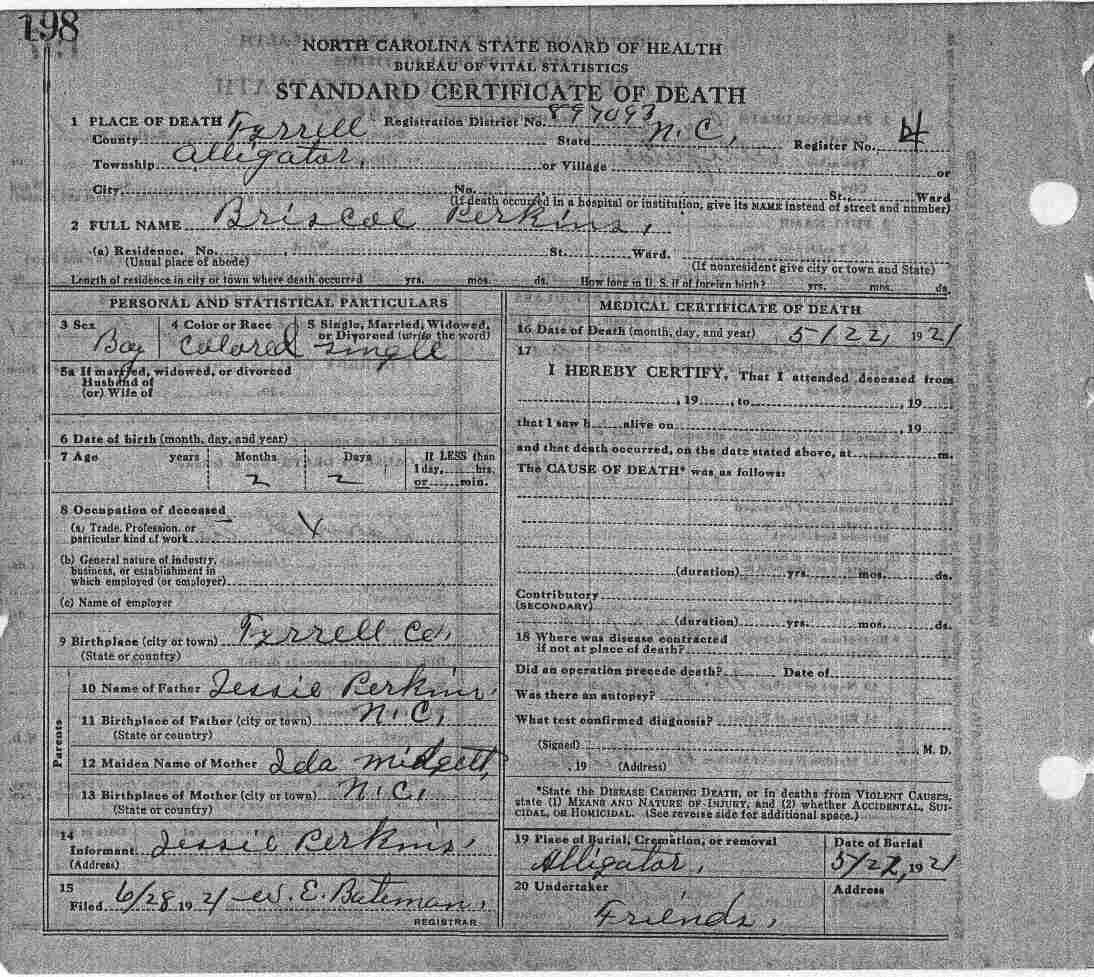 198
NORTH CAROLINA STATE BOARD OF HEALTH
BUREAU OF VITAL STATISTICS
STANDARD CERTIFICATE OF DEATH
1 PLACE OF DEATH Registration District No. 897093
County Tyrrell State N.C, Register No. 4
Township Alligator, or Village or
City, No. St., Ward
(If death occurred in a hospital or institution, give its NAME instead of street and number)
2 FULL NAME Briscoe Perkins,
(a) Residence. No. , St. Ward.
(Usual place of abode) (If nonresident give city or town and State)
Length of residence in city or town where death occurred yrs. mos. ds. How long in U. S. if of foreign birth? yrs. mos. ds.
PERSONAL AND STATISTICAL PARTICULARS
3 Sex 4 Color or Race 5 Single, Married, Widowed,
or Divorced (write the word)
Boy colored single
5a If married, widowed, or divorced
Husband of
(or) Wife of
6 Date of birth (month, day, and year)
7 Age years Months Days If LESS than
1 day, hrs.
or min.
2 2
8 Occupation of deceased
(a) Trade, Profession, or
particular kind of work
(b) General nature of industry,
business, or establishment in
which employed (or employer)
(c) Name of employer
9 Birthplace (city or town) Tyrrell Co,
(State or country)
Parents
10 Name of Father Jessie Perkins,
11 Birthplace of Father (city or town) N.C,
(State or country)
12 Maiden Name of Mother Ida Midgett,
13 Birthplace of Mother (city or town) N.C,
(State or country)
14
Informant Jessie Perkins,
(Address)
15
Filed 6/28 1921 W. E. Bateman,
REGISTRAR
MEDICAL CERTIFICATE OF DEATH
16 Date of Death (month, day, and year) 5/22, 1921
17
I HEREBY CERTIFY, That I attended deceased from
, 19 , to , 19
that I saw h alive on , 19
and that death occurred, on the date stated above, at m.
The CAUSE OF DEATH* was as follows:
(duration) yrs. mos. ds.
Contributory
(SECONDARY)
(duration) yrs. mos. ds.
18 Where was disease contracted
if not at place of death?
Did an operation precede death? Date of
Was there an autopsy?
What test confirmed diagnosis?
(Signed) , M. D.
, 19 (Address)
*State the DISEASE CAUSING DEATH, or in deaths from VIOLENT CAUSES,
state (1) MEANS AND NATURE OF INJURY, and (2) whether ACCIDENTAL, SUI-
CIDAL, OR HOMICIDAL. (See reverse side for additional space.)
19 Place of Burial, Cremation, or removal Date of Burial
Alligator, 5/22, 1921
20 Undertaker Address
Friends,